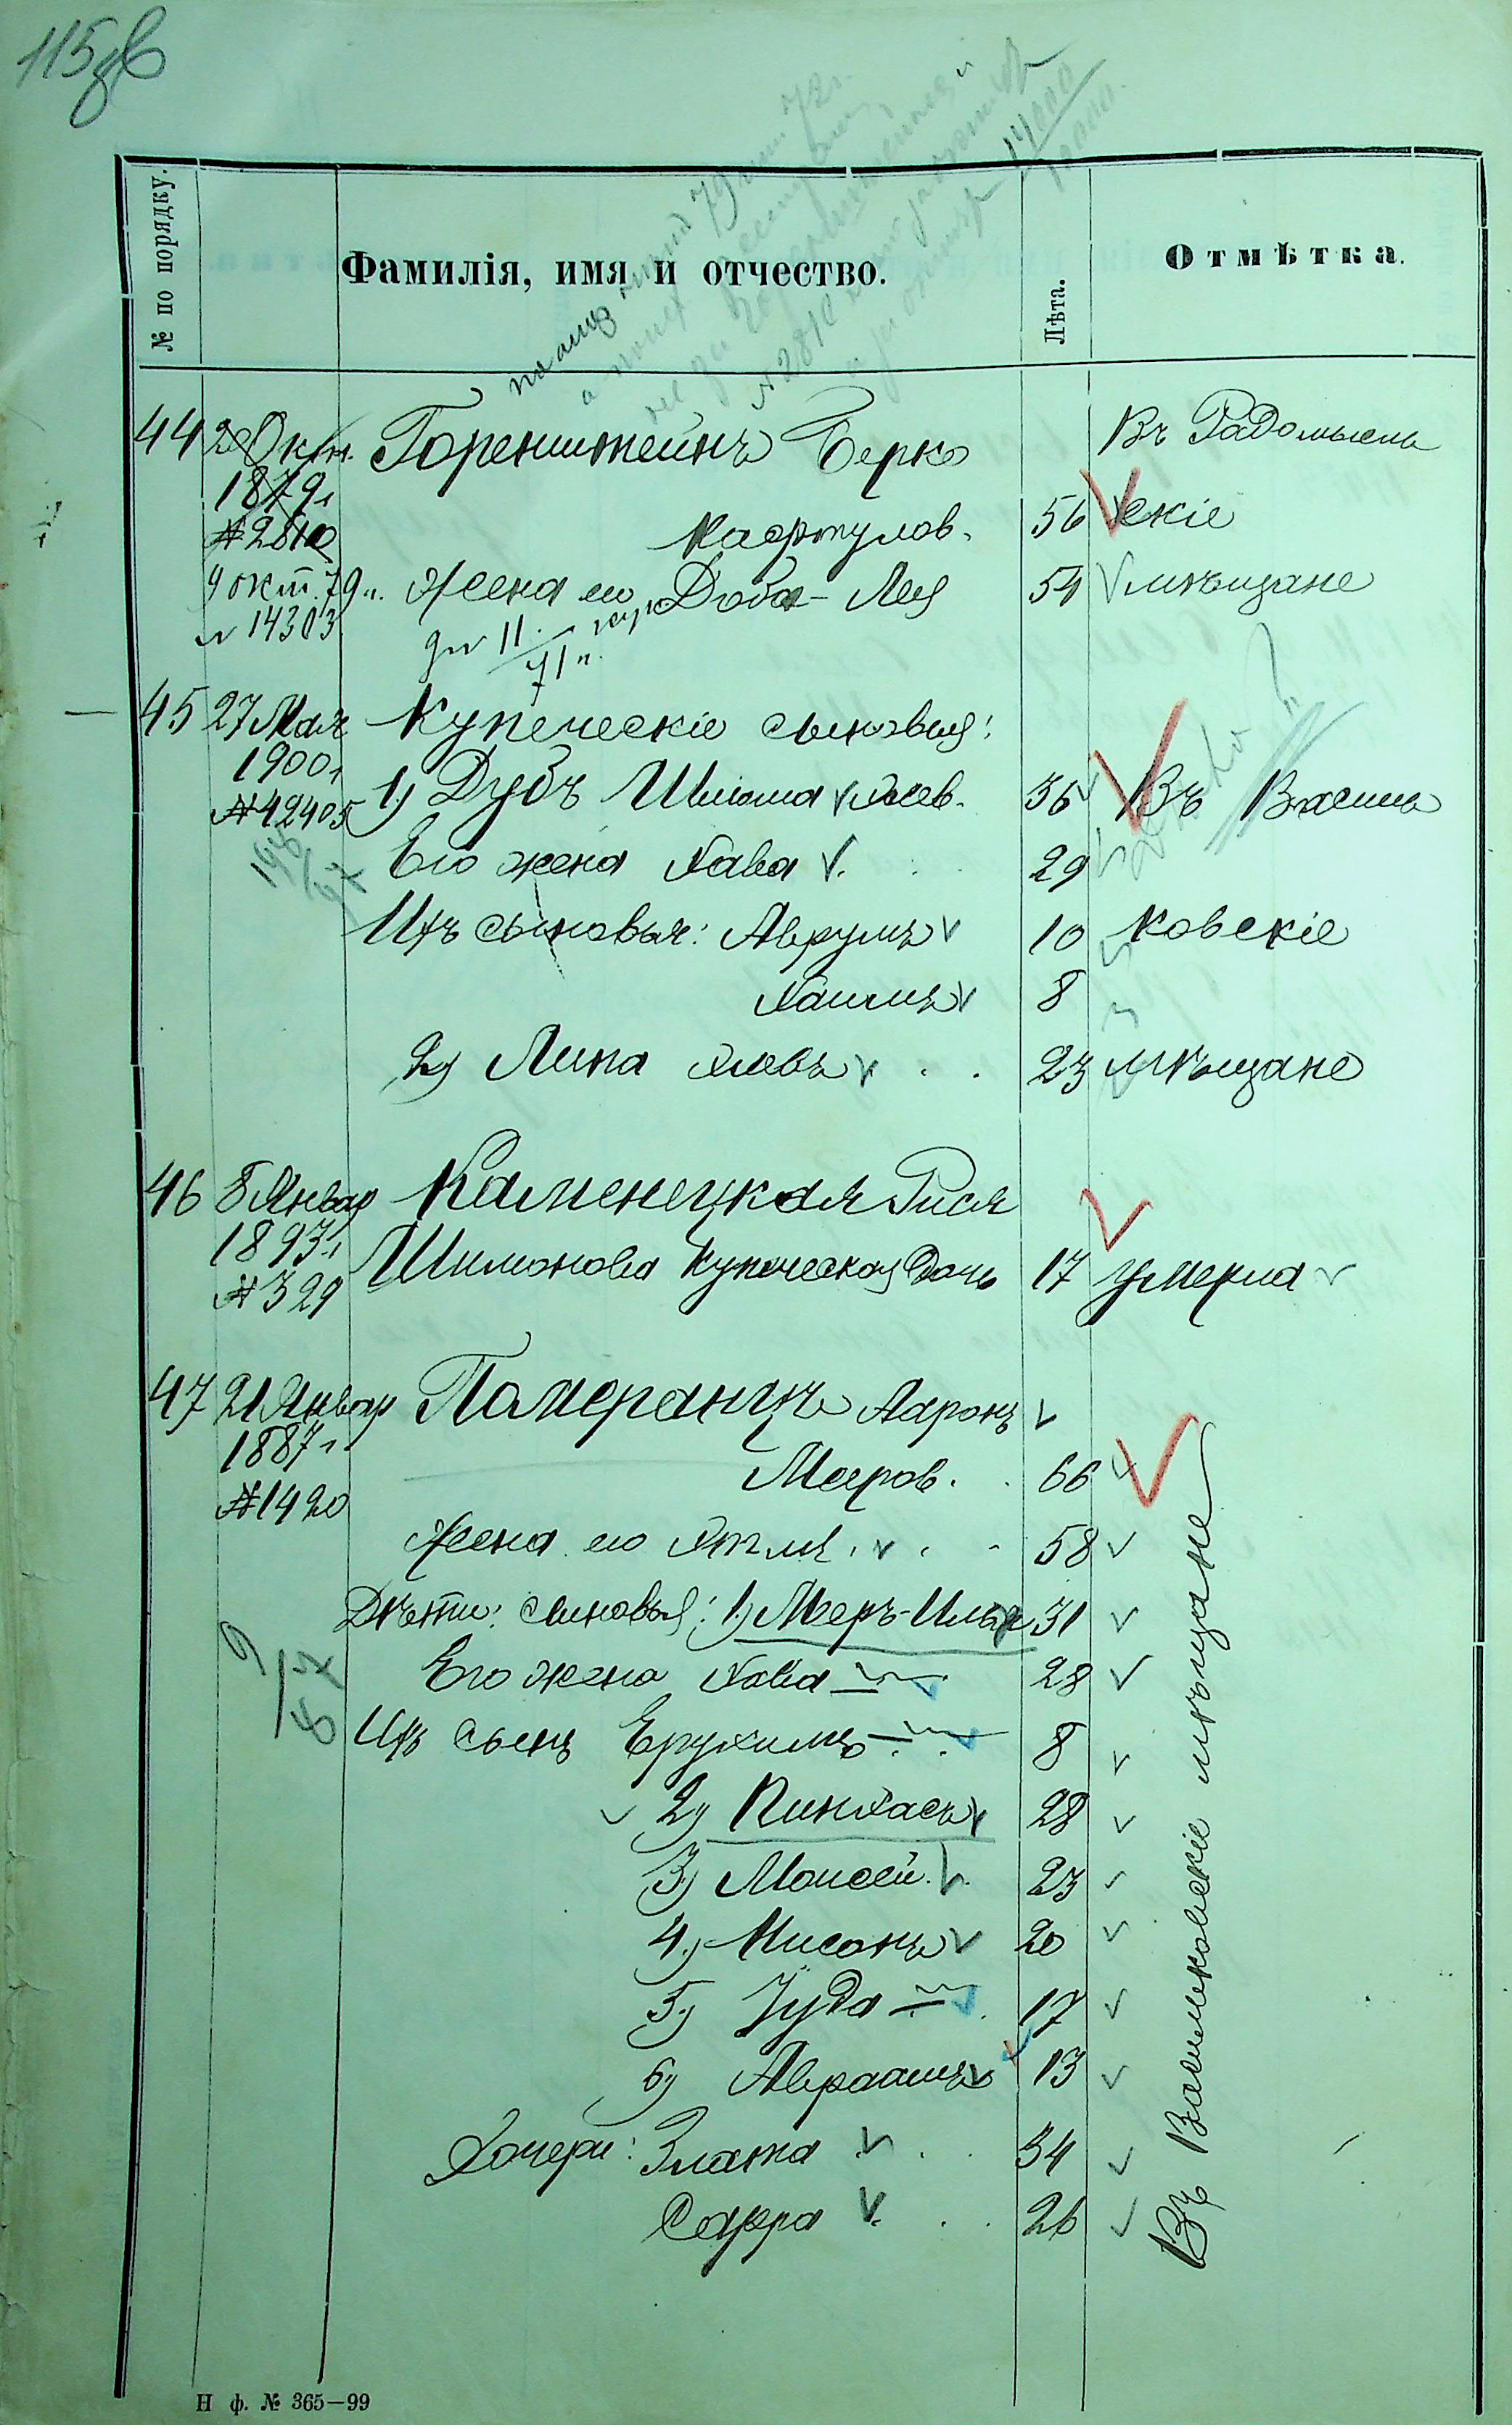 115об
№ по порядку.
Фамилія, имя и отчество.
Лѣта.
Отмѣтка.
44 20 Окт. Горенштейнъ Берко Въ Радомысль
1879 г.
№ 2810 Нафтулов. 56 скіе
9 окт. 79 г. Жена его Доба-Лея 54 мѣщане
№ 14303
45 27 Мая Купеческіе сыновья:
1900 г.
№ 42405 1) Дубъ Шлiома 36 Въ Василь
Его жена Хава 29
Ихъ сыновья: Аврумъ 10 ковскіе
Хаимъ 8
2) Липа 23 мѣщане
46 8 Январ Каменецкая Рися
1893 г.
№ 329 Шимонова купеческая дочь 17 умерла
47 21 Январ Померанцъ Ааронъ
1887 г.
№ 1420 Мееров. 66
Жена его 58
Дѣти: сыновья: 1) Меръ-Илья 31
Его жена Хава 28
Ихъ сынъ Ерухимъ 8
2) Пинхасъ 28
3) Моисей 23
4) Нисонъ 20
5) Іуда 17
6) Авраамъ 13
Дочери: Злата 34
Сарра 26
Въ Васильковскіе мѣщане
Н ф. № 365—99